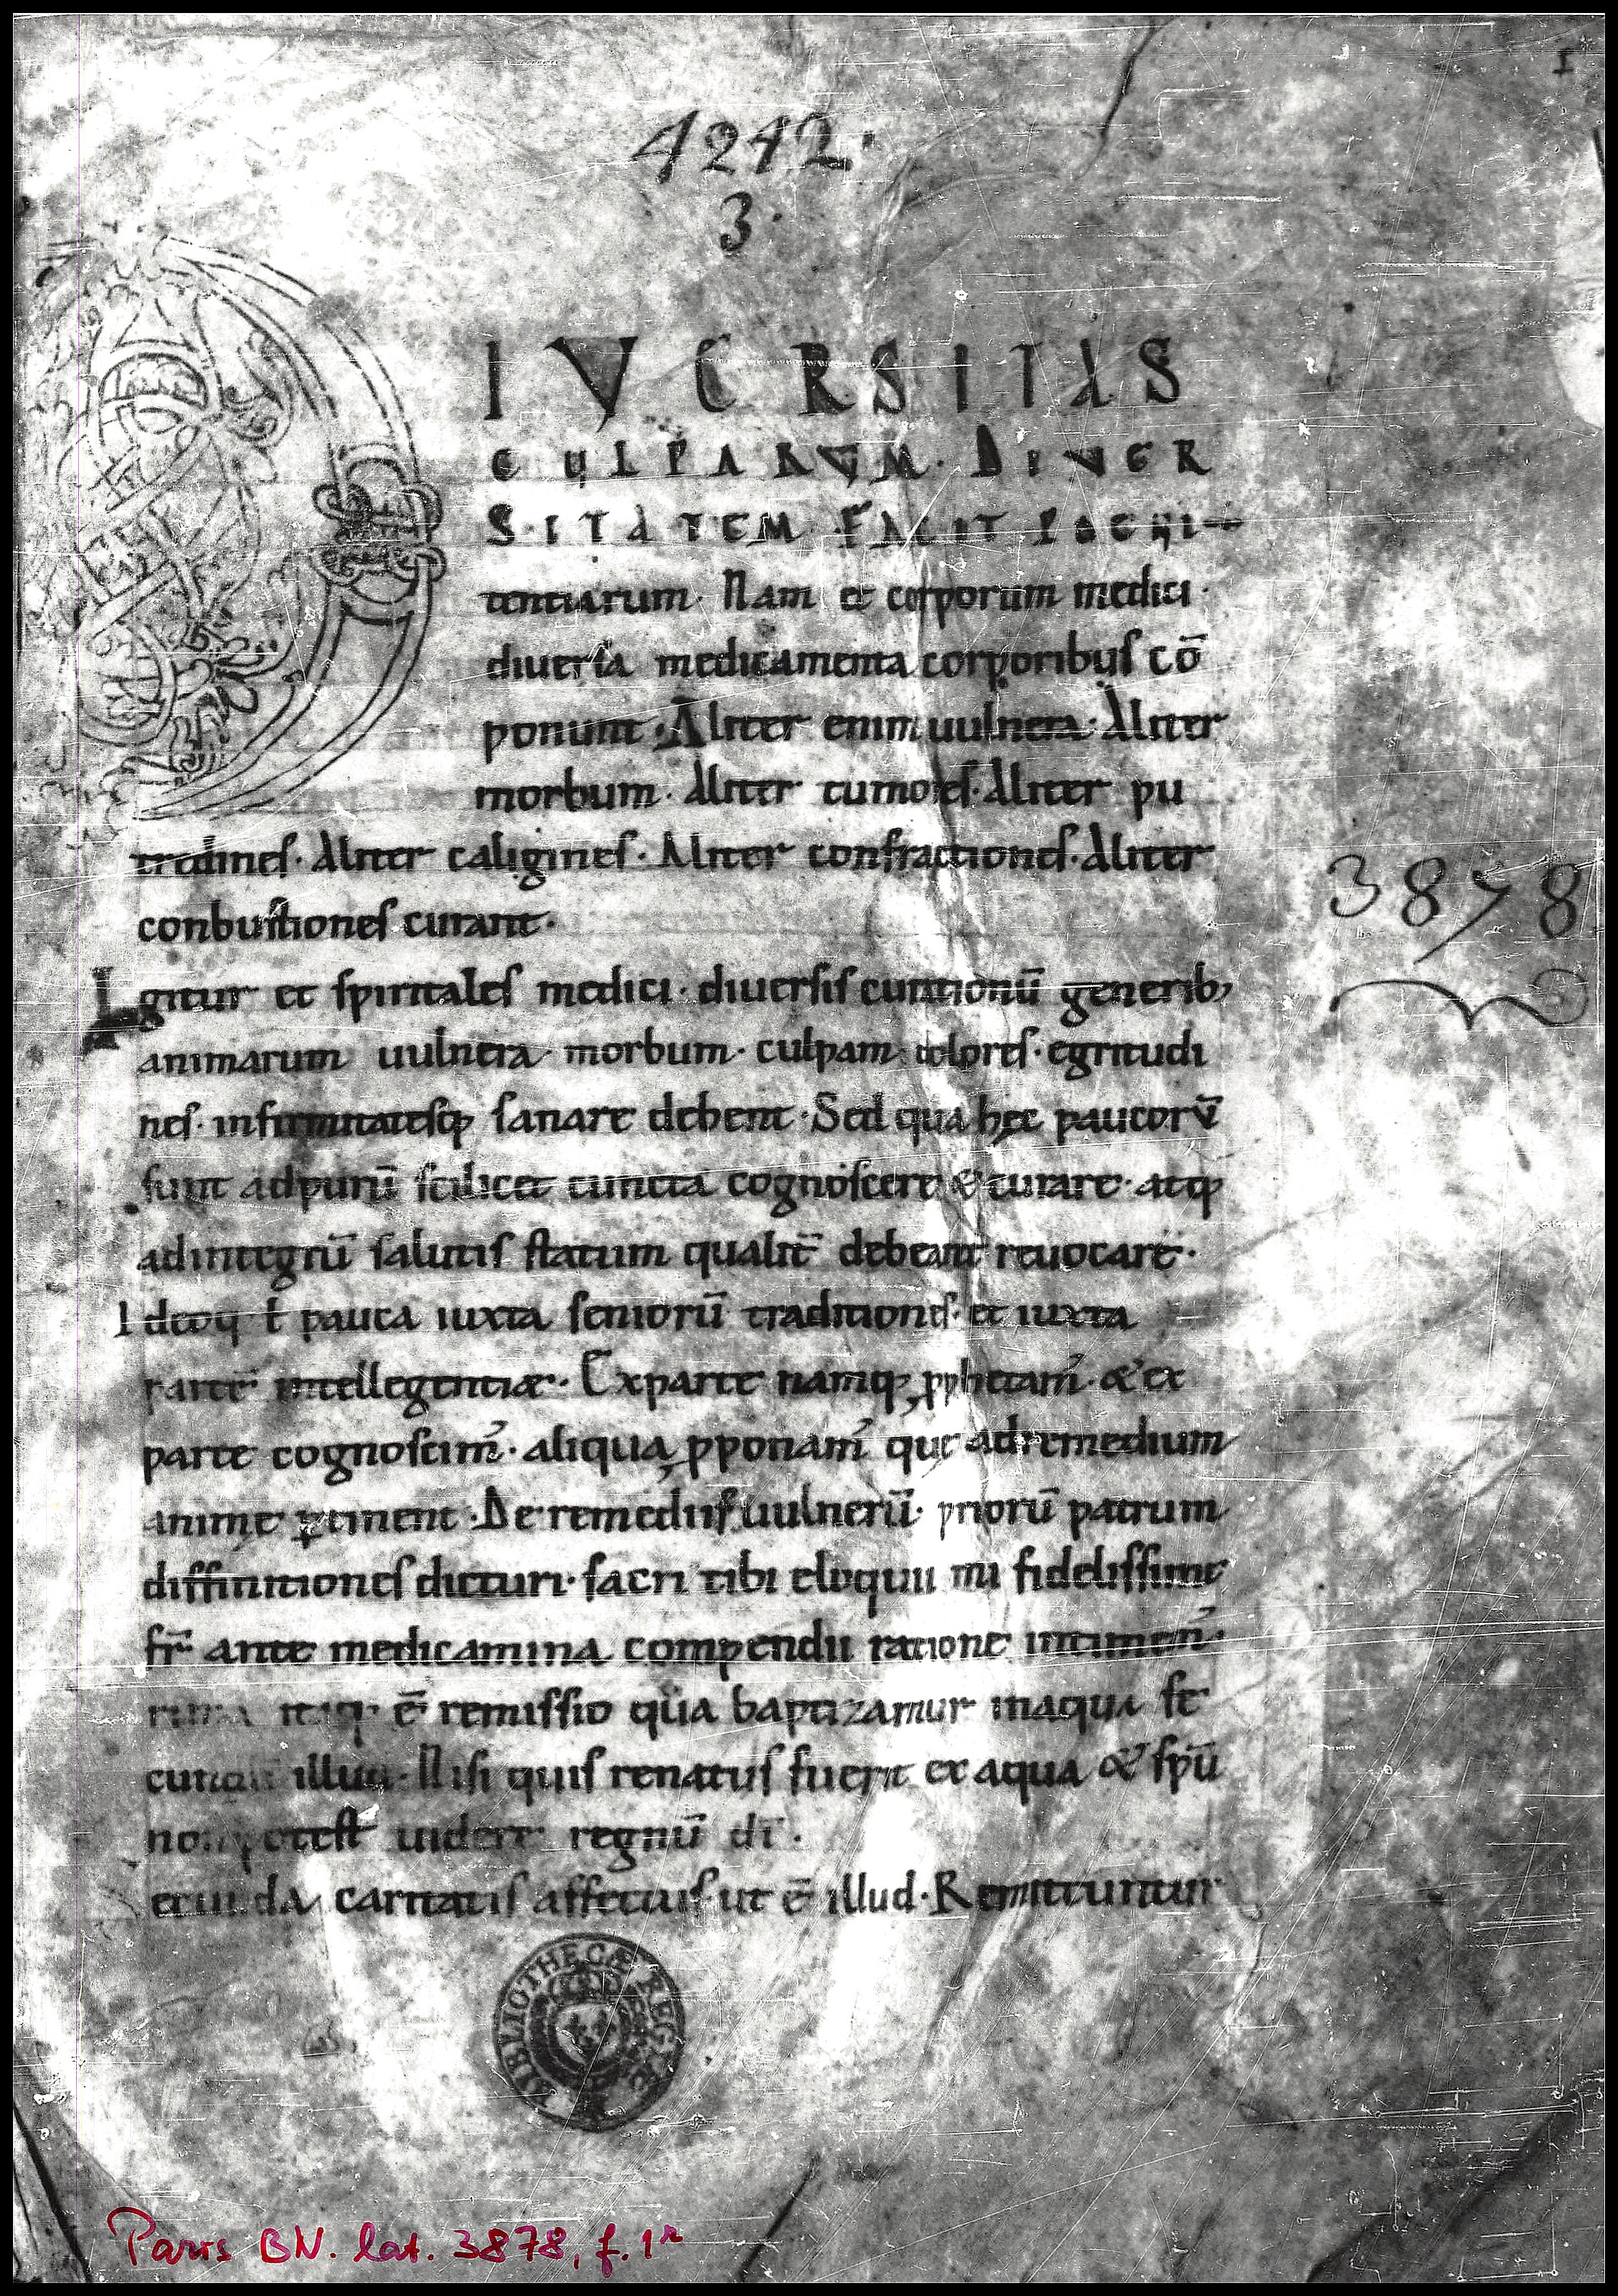 1
4212.
3.
DIVERSITAS
CULPARVM. DIVER
SITATEM FACIT POENI
tentiarum. Nam et corporum medici.
diuersa medicamenta corporibus cō
ponunt. Aliter enim uulnera. Aliter
morbum. Aliter tumores. Aliter pu
tredines. Aliter caligines. Aliter confractiones. Aliter
conbustiones curant.
3878
Igitur et spiritales medici. diuersis curationū generib;
animarum uulnera. morbum. culpam. dolores. egritudi
nes. infirmitatesq; sanare debent. Sed quia hęc paucorū
sunt adpurū scilicet cuncta cognoscere & curare. atq;
adintegrū salutis statum qualit̄ debeant reuocare.
Ideoq; ł pauca iuxta seniorū traditiones. et iuxta
parte intellegentiæ. Exparte namq; ꝓphetam᾽. & ex
parte cognoscim᾽. aliqua ꝓponam᾽ quę adremedium
animę ꝑtinent. De remediis uulnerū. priorū patrum
diffinitiones dicturi. sacri tibi eloquii mi fidelissime
fr̄ ante medicamina compendii ratione intimem᾽.
itaq; ē remissio qua baptizamur inaqua se
cundū illud. Nisi quis renatus fuerit ex aqua & spū
non potest uidere regnū dī.
caritatis affectus. ut ē illud. Remittuntur
BIBLIOTHECÆ REGIÆ
Paris BN. lat. 3878, f. 1r